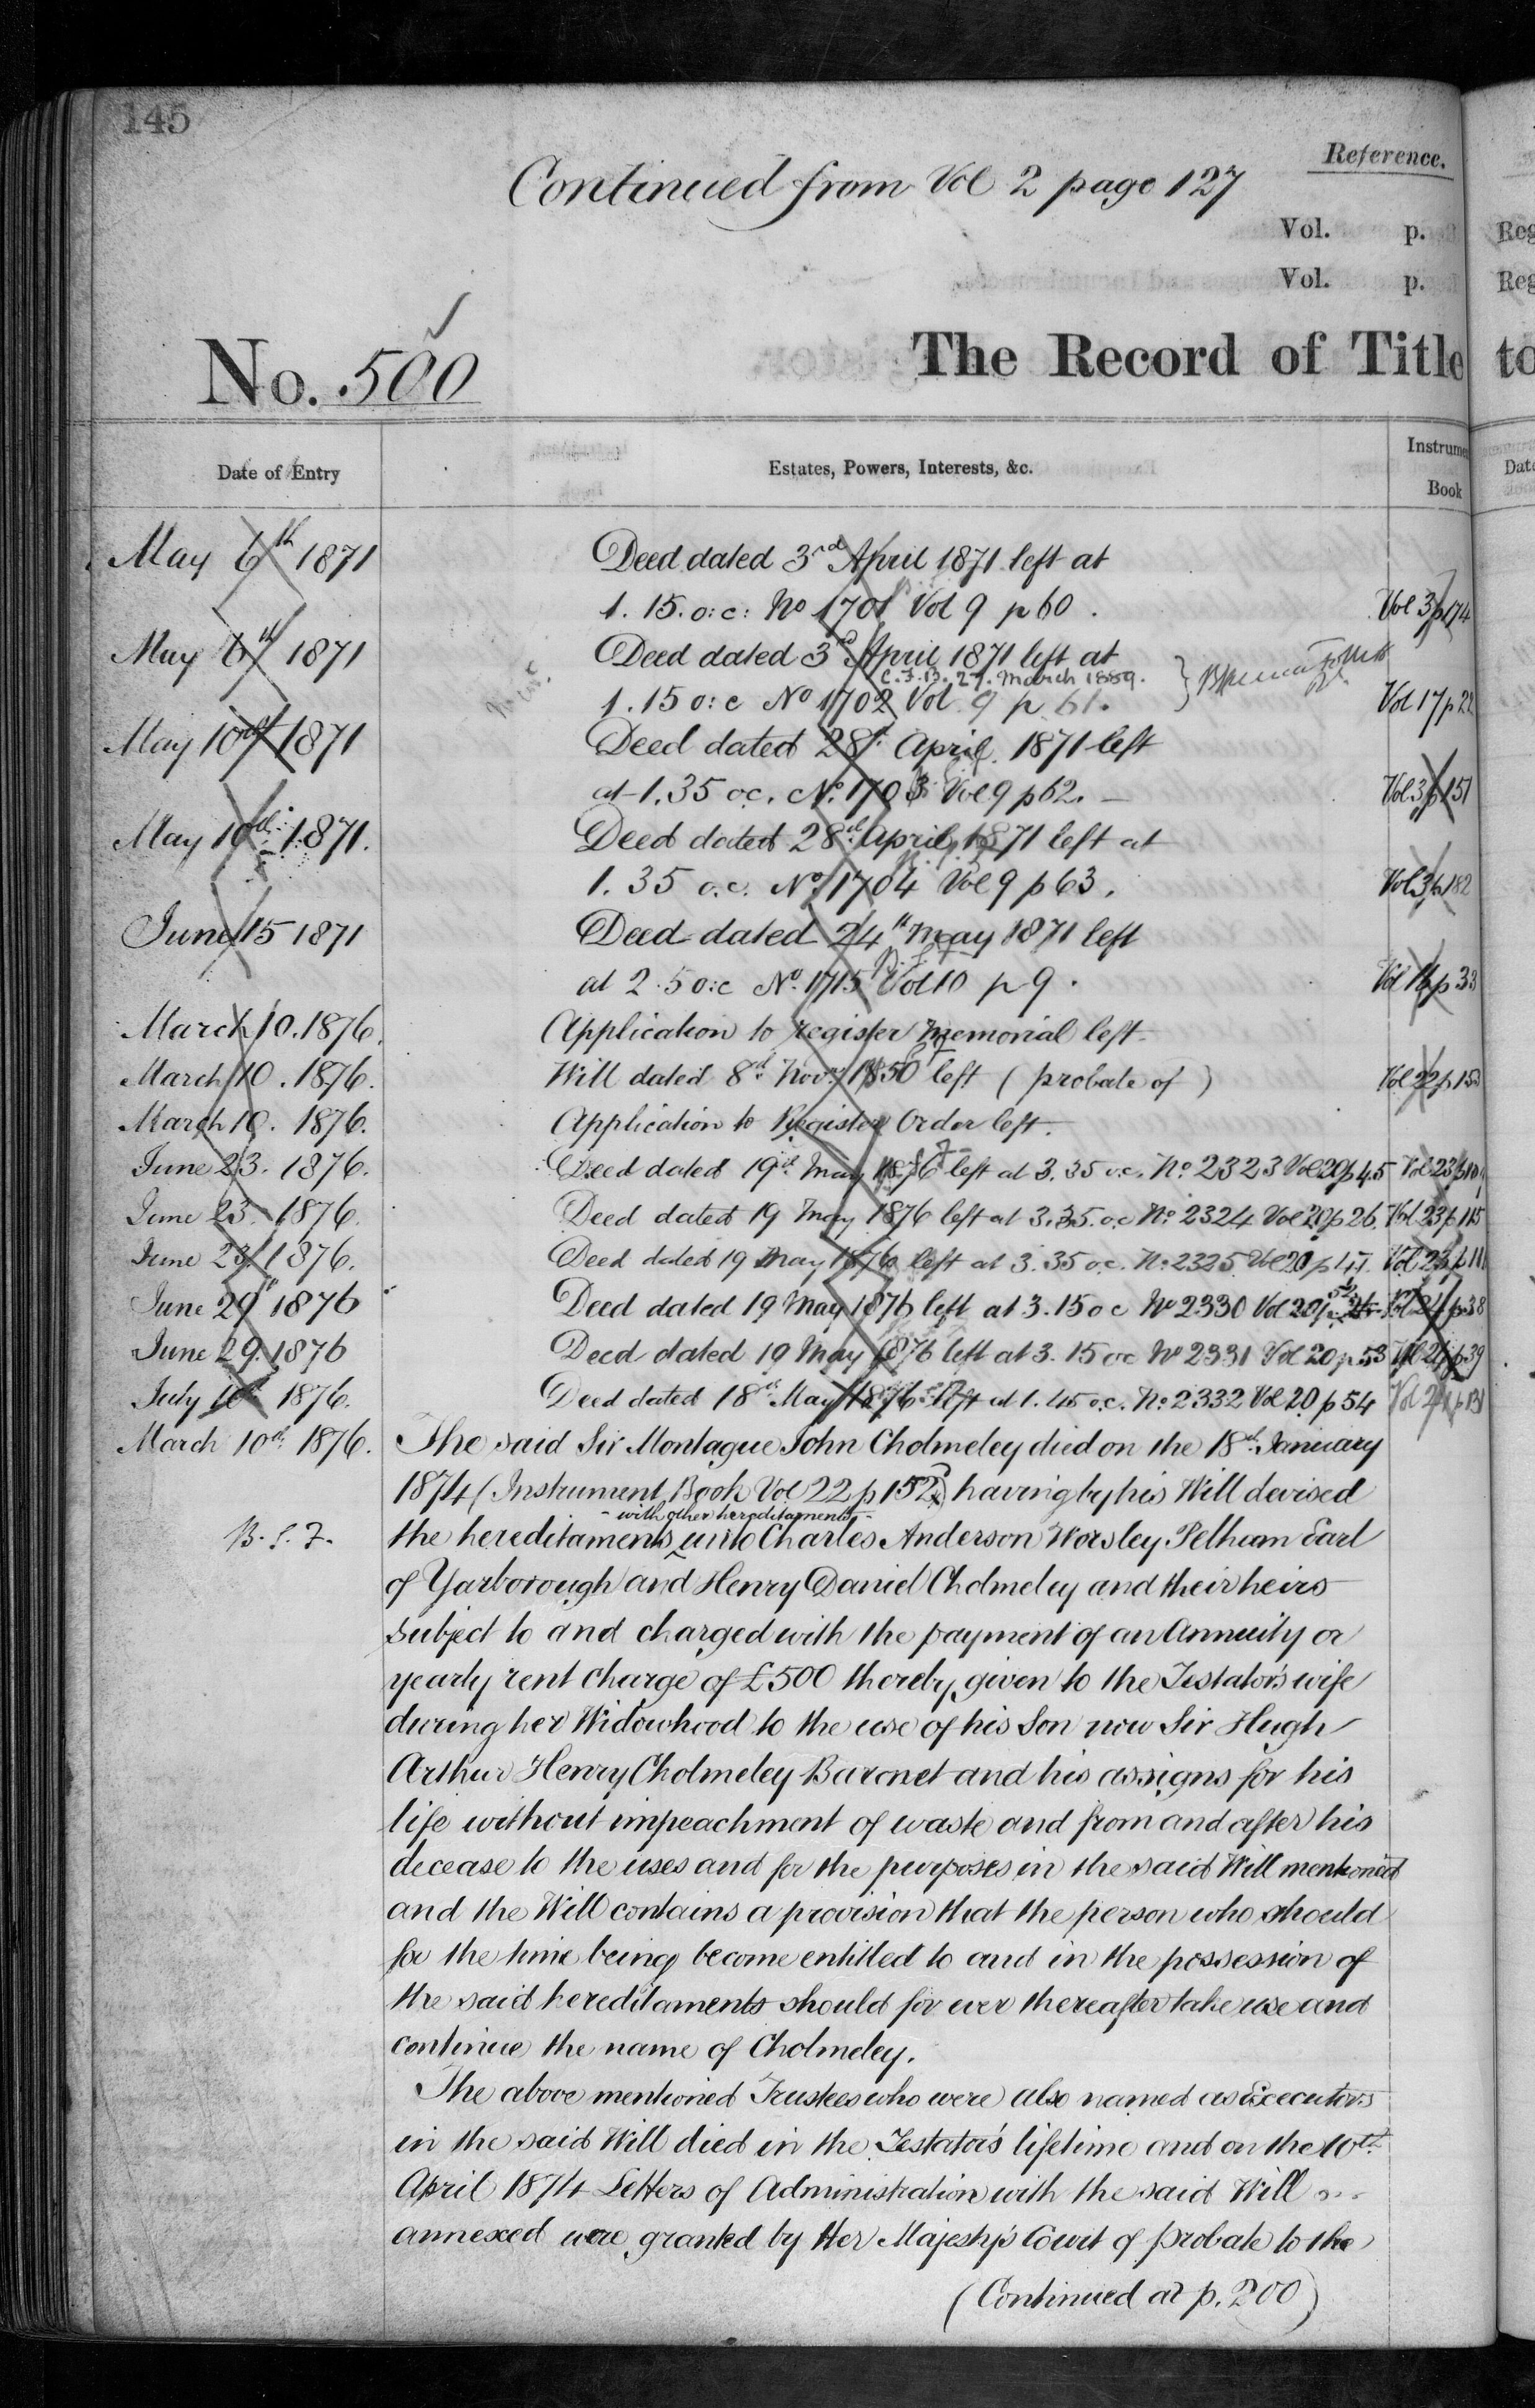 145
Continued from Vol 2 page 127
Reference.
Vol. p.
Vol. p.
No. 500
The Record of Title
Date of Entry
Estates, Powers, Interests, &c.
Book
May 6th 1871
Deed dated 3rd April 1871 left at
1. 15. o:c: No 1701 Vol 9 p 60.
Vol 3 p 174
May 6th 1871
Deed dated 3rd April 1871 left at
C.F.B. 27. March 1889.
1. 15 o:c No 1702 Vol 9 p 61.
Vol 17 p 22
May 10th 1871
Deed dated 28th April 1871 left
at 1.35 oc. No. 1703 Vol 9 p 62. —
Vol 3 p 151
May 10th 1871.
Deed dated 28th April 1871 left at
1. 35 o.c. No. 1704 Vol 9 p 63.
Vol 3 p 182
June 15 1871
Deed dated 24th May 1871 left
at 2.5 o:c No. 1715 Vol 10 p 9.
March 10. 1876.
Application to register memorial left
March 10. 1876.
Will dated 8th Novr. 1850 left (probate of)
Vol 22 p 152
March 10. 1876.
Application to Register Order left.
June 23. 1876.
Deed dated 19th May 1876 left at 3.35 o.c. No. 2323 Vol 20 p 45
June 23. 1876.
Deed dated 19 May 1876 left at 3.35. o.c No. 2324 Vol 20 p 26. Vol 23 p 115
June 23. 1876.
Deed dated 19 May 1876 left at 3.35 o.c. No. 2325 Vol 20 p 47.
June 29th 1876
Deed dated 19 May 1876 left at 3.15 o c No 2330 Vol 20 p 52 Vol 24 p 38
June 29. 1876
Deed dated 19 May 1876 left at 3.15 oc No 2331 Vol 20 p 53 Vol 24 p 39
July 10th 1876.
Deed dated 18th May 1876 left at 1.45 o.c. No. 2332 Vol 20 p 54
March 10th 1876.
The said Sir Montague John Cholmeley died on the 18th January
1874 (Instrument Book Vol 22 p 152) having by his Will devised
- with other hereditaments -
B. S. F.
the hereditaments unto Charles Anderson Worsley Pelham Earl
of Yarborough and Henry Daniel Cholmeley and their heirs
subject to and charged with the payment of an Annuity or
yearly rent charge of £500 thereby given to the Testator's wife
during her Widowhood to the use of his Son now Sir Hugh
Arthur Henry Cholmeley Baronet and his assigns for his
life without impeachment of waste and from and after his
decease to the uses and for the purposes in the said Will mentioned
and the Will contains a provision that the person who should
for the time being become entitled to and in the possession of
the said hereditaments should for ever thereafter take use and
continue the name of Cholmeley.
The above mentioned Trustees who were also named as Executors
in the said Will died in the Testator's lifetime and on the 10th
April 1874 Letters of Administration with the said Will
annexed were granted by Her Majesty's Court of Probate to the
(Continued at p. 200)